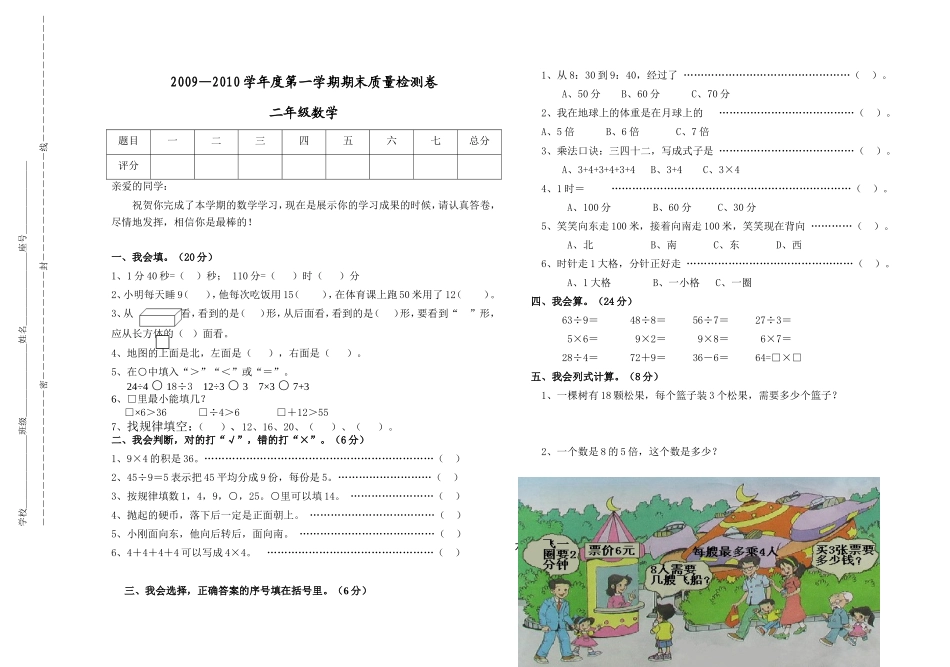 学校 班级 姓名 座号
密 封 线
2009—2010 学年度第一学期期末质量检测卷
二年级数学
题目 一 二 三 四 五 六 七 总分
评分
亲爱的同学:
祝贺你完成了本学期的数学学习,现在是展示你的学习成果的时候,请认真答卷,
尽情地发挥,相信你是最棒的!
一、我会填。(20 分)
1、1 分 40 秒=( )秒; 110 分=( )时( )分
2、小明每天睡 9( ),他每次吃饭用 15( ),在体育课上跑 50 米用了 12( )。
3、从 看,看到的是( )形,从后面看,看到的是( )形,要看到“ ”形,
应从长方体的( )面看。
4、地图的上面是北,左面是( ),右面是( )。
5、在○中填入“>”“<”或“=”。
24÷4 ○ 18÷3 12÷3 ○ 3 7×3 ○ 7+3
6、□里最小能填几?
□×6>36 □÷4>6 □+12>55
7、找规律填空:( )、12、16、20、( )、( )。
二、我会判断,对的打“√”,错的打“×”。(6 分)
1、9×4 的积是 36。……………………………………………………( )
2、45÷9=5 表示把 45 平均分成 9 份,每份是 5。……………………( )
3、按规律填数 1, 4, 9, ○, 25。○里可以填 14。 …………………( )
4、抛起的硬币,落下后一定是正面朝上。 ……………………………( )
5、小刚面向东,他向后转后,面向南。 ………………………………( )
6、4+4+4+4 可以写成 4×4。 ……………………………………( )
三、我会选择,正确答案的序号填在括号里。(6 分)
1、从 8:30 到 9:40,经过了 ……………………………………( )。
A、50 分 B、60 分 C、70 分
2、我在地球上的体重是在月球上的 ………………………………( )。
A、5 倍 B、6 倍 C、7 倍
3、乘法口诀:三四十二,写成式子是 ………………………………( )。
A、3+4+3+4+3+4 B、3+4 C、3×4
4、1 时= ………………………………………………………( )。
A、100 分 B、60 分 C、30 分
5、笑笑向东走 100 米,接着向南走 100 米,笑笑现在背向 …………( )。
A、北 B、南 C、东 D、西
6、时针走 1 大格,分针正好走 ……………………………………( )。
A、1 大格 B、一小格 C、一圈
四、我会算。(24 分)
63÷9= 48÷8= 56÷7= 27÷3=
5×6= 9×2= 9×8= 6×7=
28÷4= 72+9= 36-6= 64=□×□
五、我会列式计算。(8 分)
1、一棵树有 18 颗松果,每个篮子装 3 个松果,需要多少个篮子?
2、一个数是 8 的 5 倍,这个数是多少?
飞一
圈要2
分钟
票价6元
8人需要
几艘飞船?
每艘最多乘4人
买3张票要
多少钱?